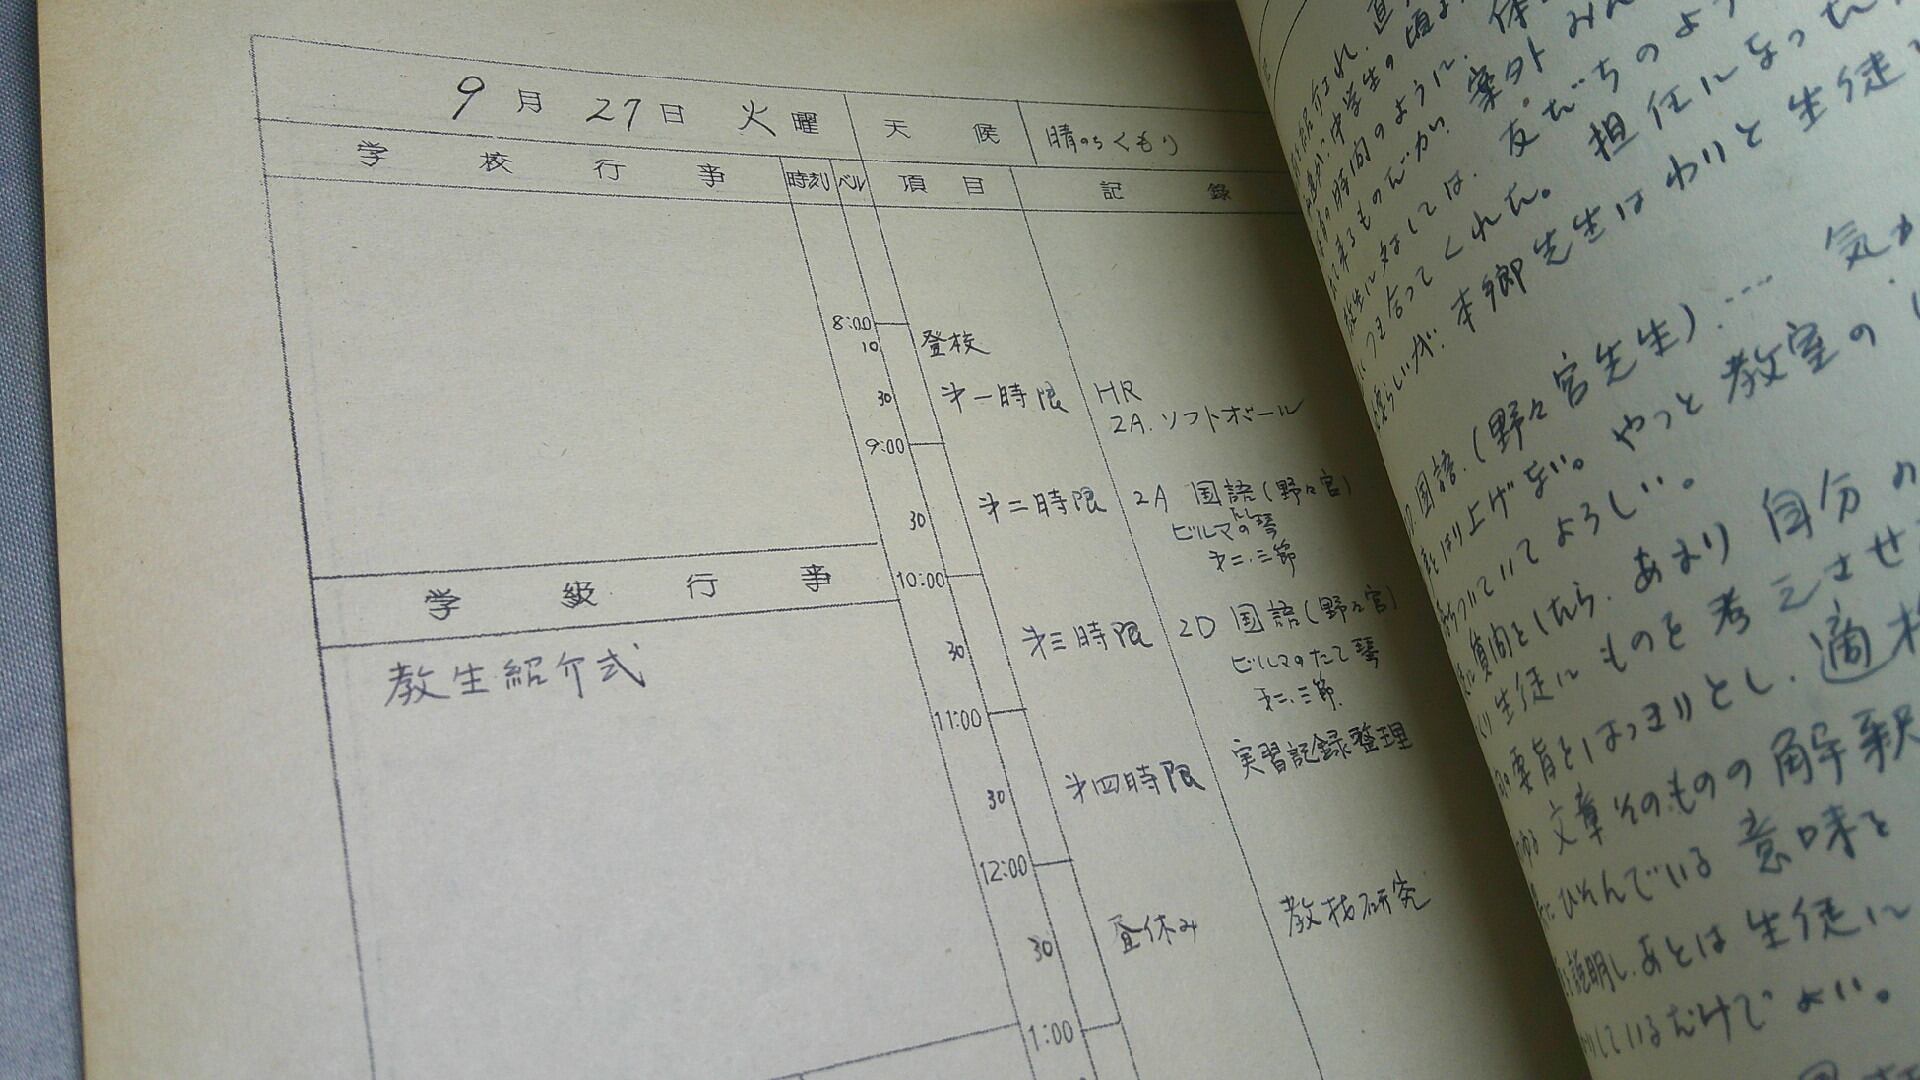 9月27日 火曜 天候 晴のちくもり
学校行事 時刻 ベル 項目 記録
8:00
10 登校
30 第一時限 HR
2A. ソフトボール
9:00
30 第二時限 2A 国語(野々宮)
ビルマの竪琴
第二.三節
10:00
学級行事
教生紹介式
30 第三時限 2D 国語(野々宮)
ビルマのたて琴
第二.三節.
11:00
30 第四時限 実習記録整理
12:00
30 昼休み 教材研究
1:00
紹介され、直
中学生の頃よ
時間のように、体
来るものだが、案外みん
友だちのよう
つき合ってくれた。担任になった
らしいが、本郷先生はわりと生徒
国語.(野々宮先生).... 気か
はり上げない。やっと教室の
ついていてよろしい。
質問としたら、あまり自分の
生徒にものを考えさせ
要旨をはっきりとし、適
文章そのものの解釈
ひそんでいる意味を
説明し、あとは生徒に
しているだけでよい。